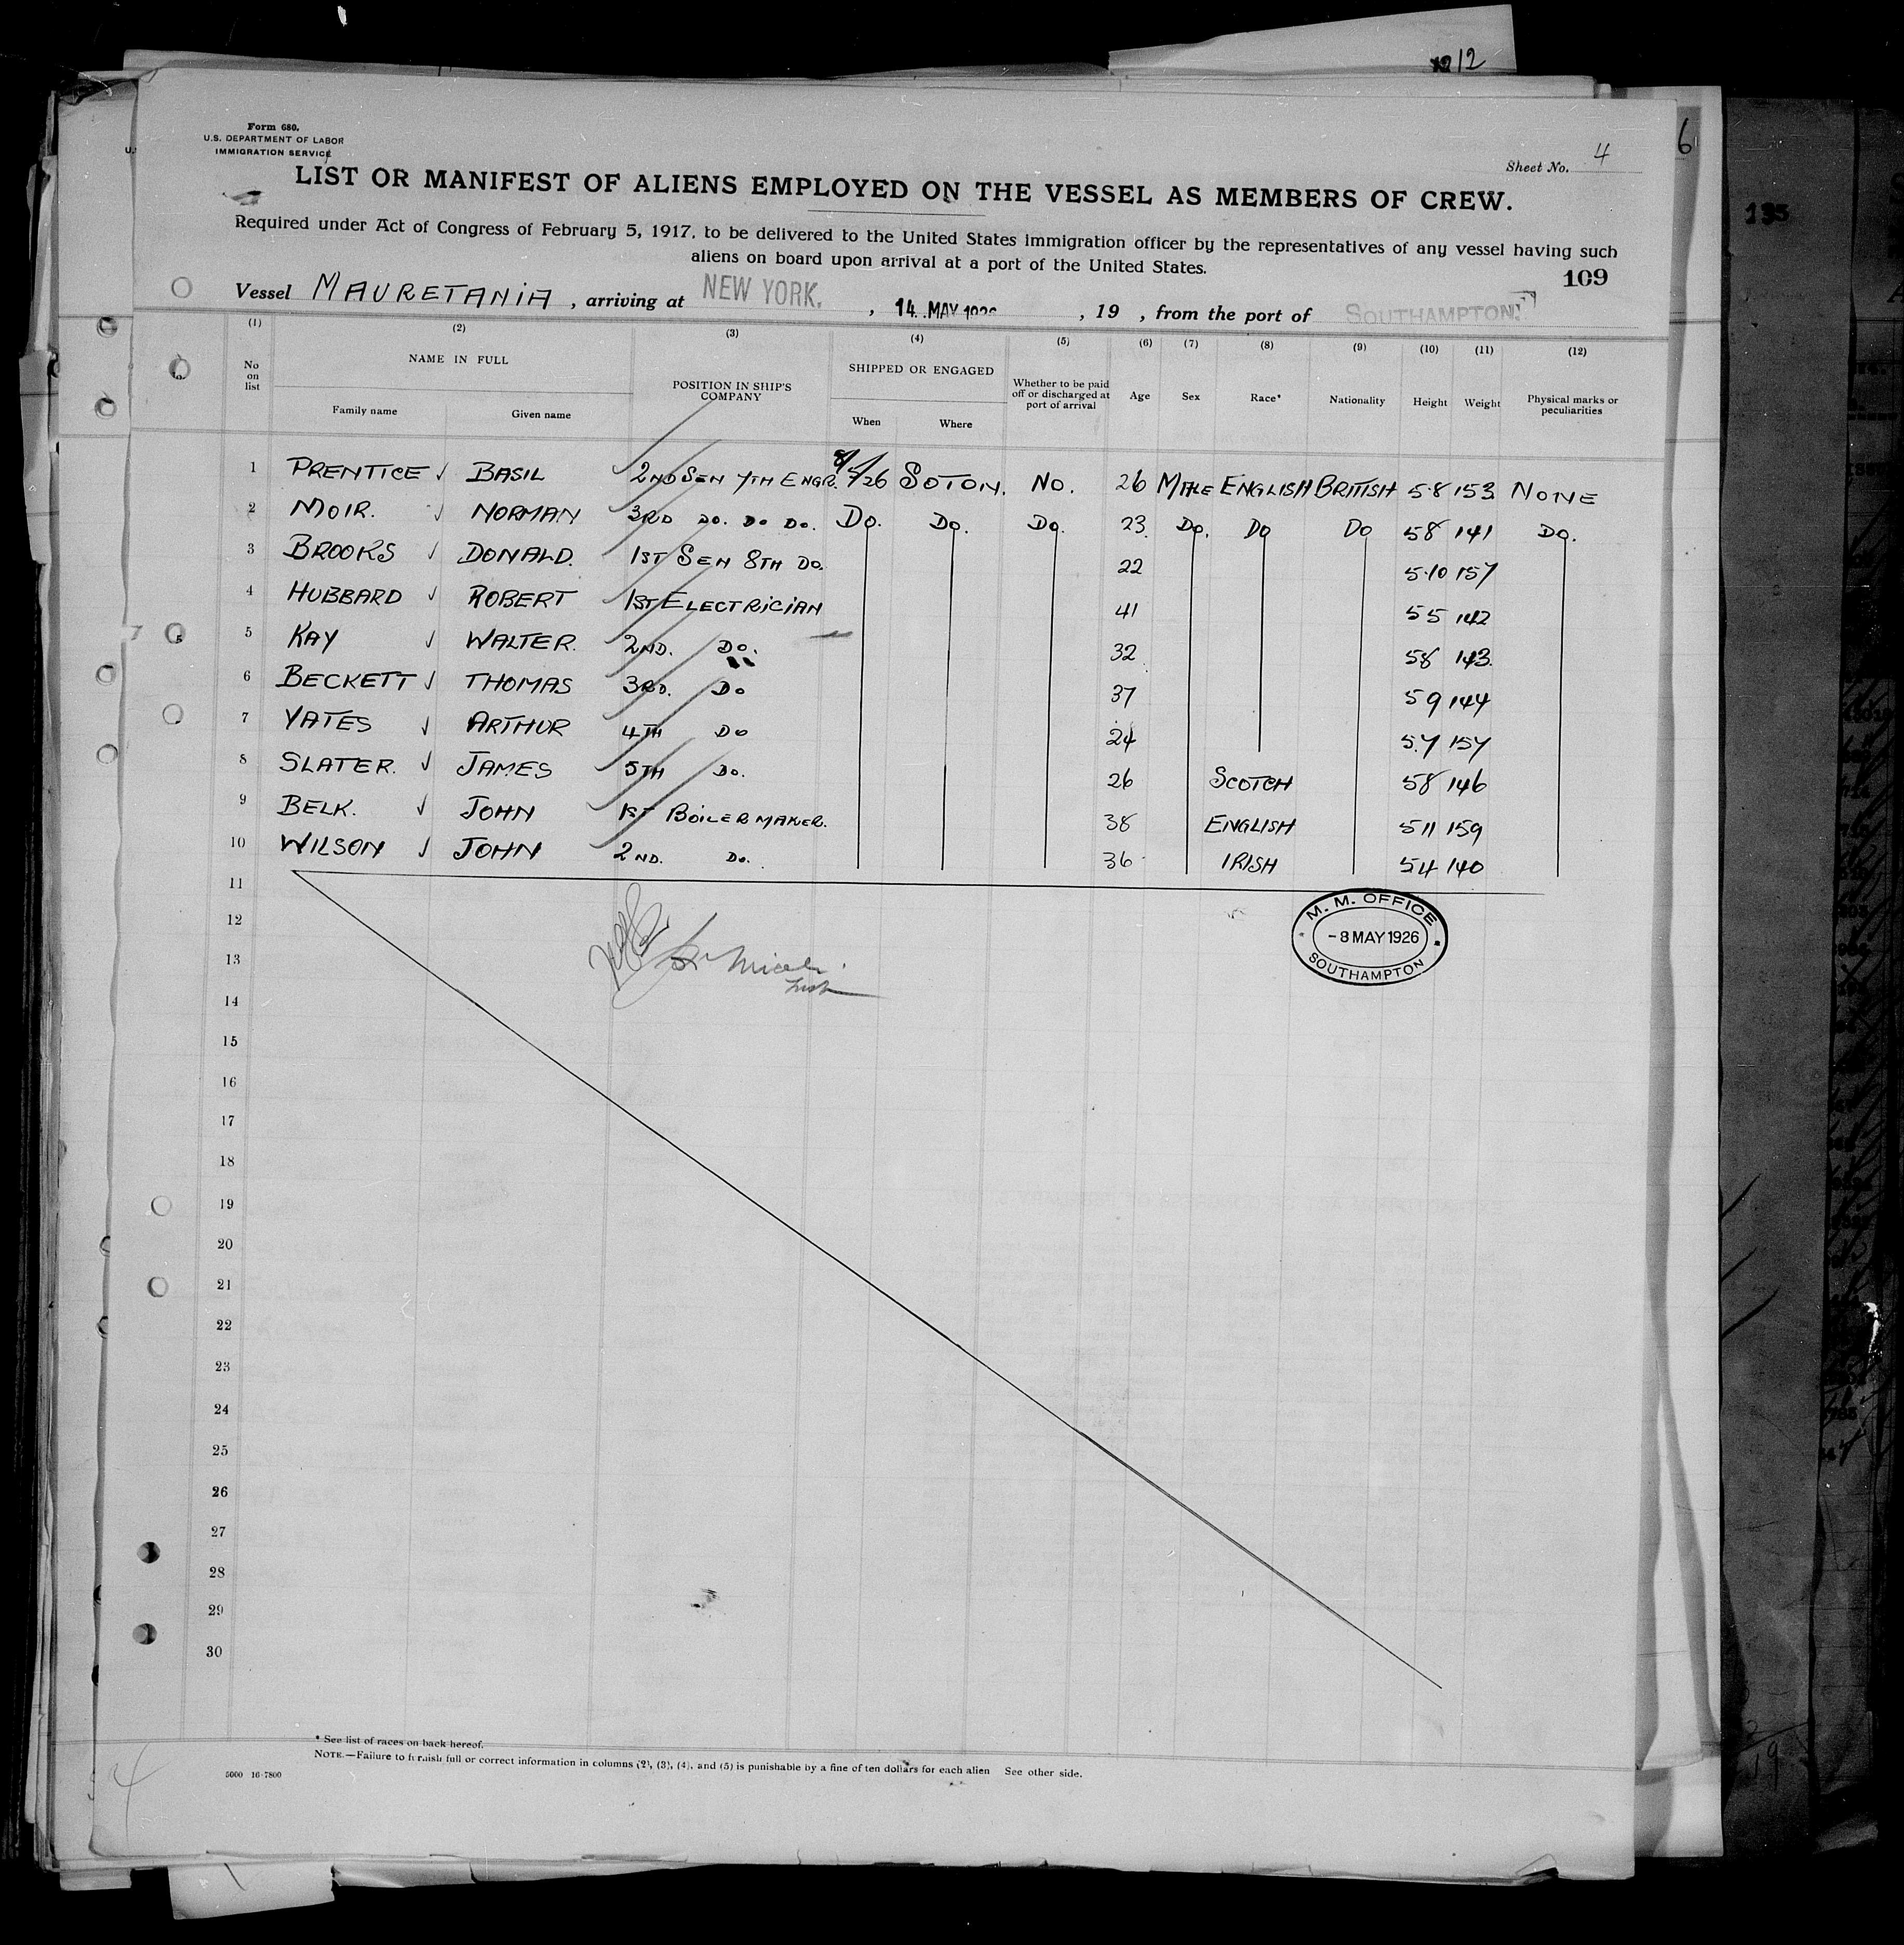 1212
6
Form 680.
U.S. DEPARTMENT OF LABOR
IMMIGRATION SERVICE
Sheet No. 4
LIST OR MANIFEST OF ALIENS EMPLOYED ON THE VESSEL AS MEMBERS OF CREW.
Required under Act of Congress of February 5, 1917, to be delivered to the United States immigration officer by the representatives of any vessel having such
aliens on board upon arrival at a port of the United States.
109
135
Vessel MAURETANIA, arriving at NEW YORK, 14 MAY 1926, 19 , from the port of SOUTHAMPTON
(1) (2) (3) (4) (5) (6) (7) (8) (9) (10) (11) (12)
No on list NAME IN FULL POSITION IN SHIP'S COMPANY SHIPPED OR ENGAGED Whether to be paid off or discharged at port of arrival Age Sex Race* Nationality Height Weight Physical marks or peculiarities
Family name Given name When Where
1 PRENTICE BASIL 2ND SEN 7TH ENGR. 8/5/26 SOTON. NO. 26 MALE ENGLISH BRITISH 5·8 153 NONE
2 MOIR. NORMAN 3RD DO. DO DO. DO. DO. DO. 23 DO. DO DO 58 141 DO.
3 BROOKS DONALD. 1ST SEN 8TH DO. 22 5·10 157
4 HUBBARD ROBERT 1ST ELECTRICIAN 41 55 142
5 KAY WALTER. 2ND. DO. 32 58 143.
6 BECKETT THOMAS 3RD. DO 37 59 144
7 YATES ARTHUR 4TH DO 24 5.7 157
8 SLATER. JAMES 5TH DO. 26 SCOTCH 58 146
9 BELK. JOHN 1ST BOILERMAKER. 38 ENGLISH 511 159
10 WILSON JOHN 2ND. DO. 36 IRISH 54 140
11
12
13
14
15
16
17
18
19
20
21
22
23
24
25
26
27
28
29
30
M. M. OFFICE
-8 MAY 1926
SOUTHAMPTON
* See list of races on back hereof.
NOTE.—Failure to furnish full or correct information in columns (2), (3), (4), and (5) is punishable by a fine of ten dollars for each alien See other side.
5000 16-7800
4
19